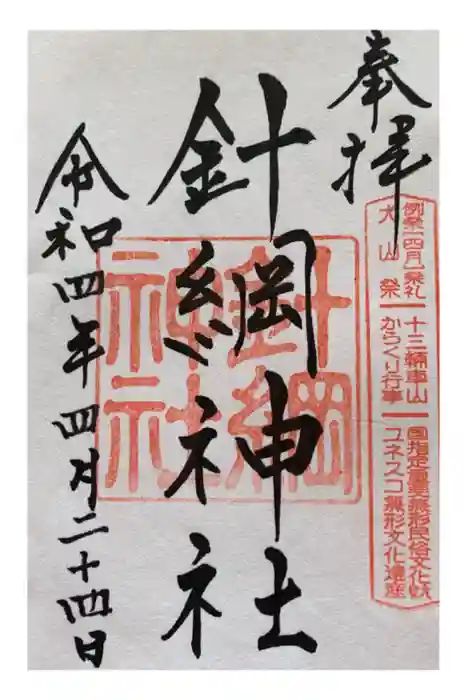 奉拝
例祭(四月)祭礼 十三輛車山 国指定重要無形民俗文化財
犬山祭 からくり行事 ユネスコ無形文化遺産
針綱神社
針綱神社
令和四年四月二十四日